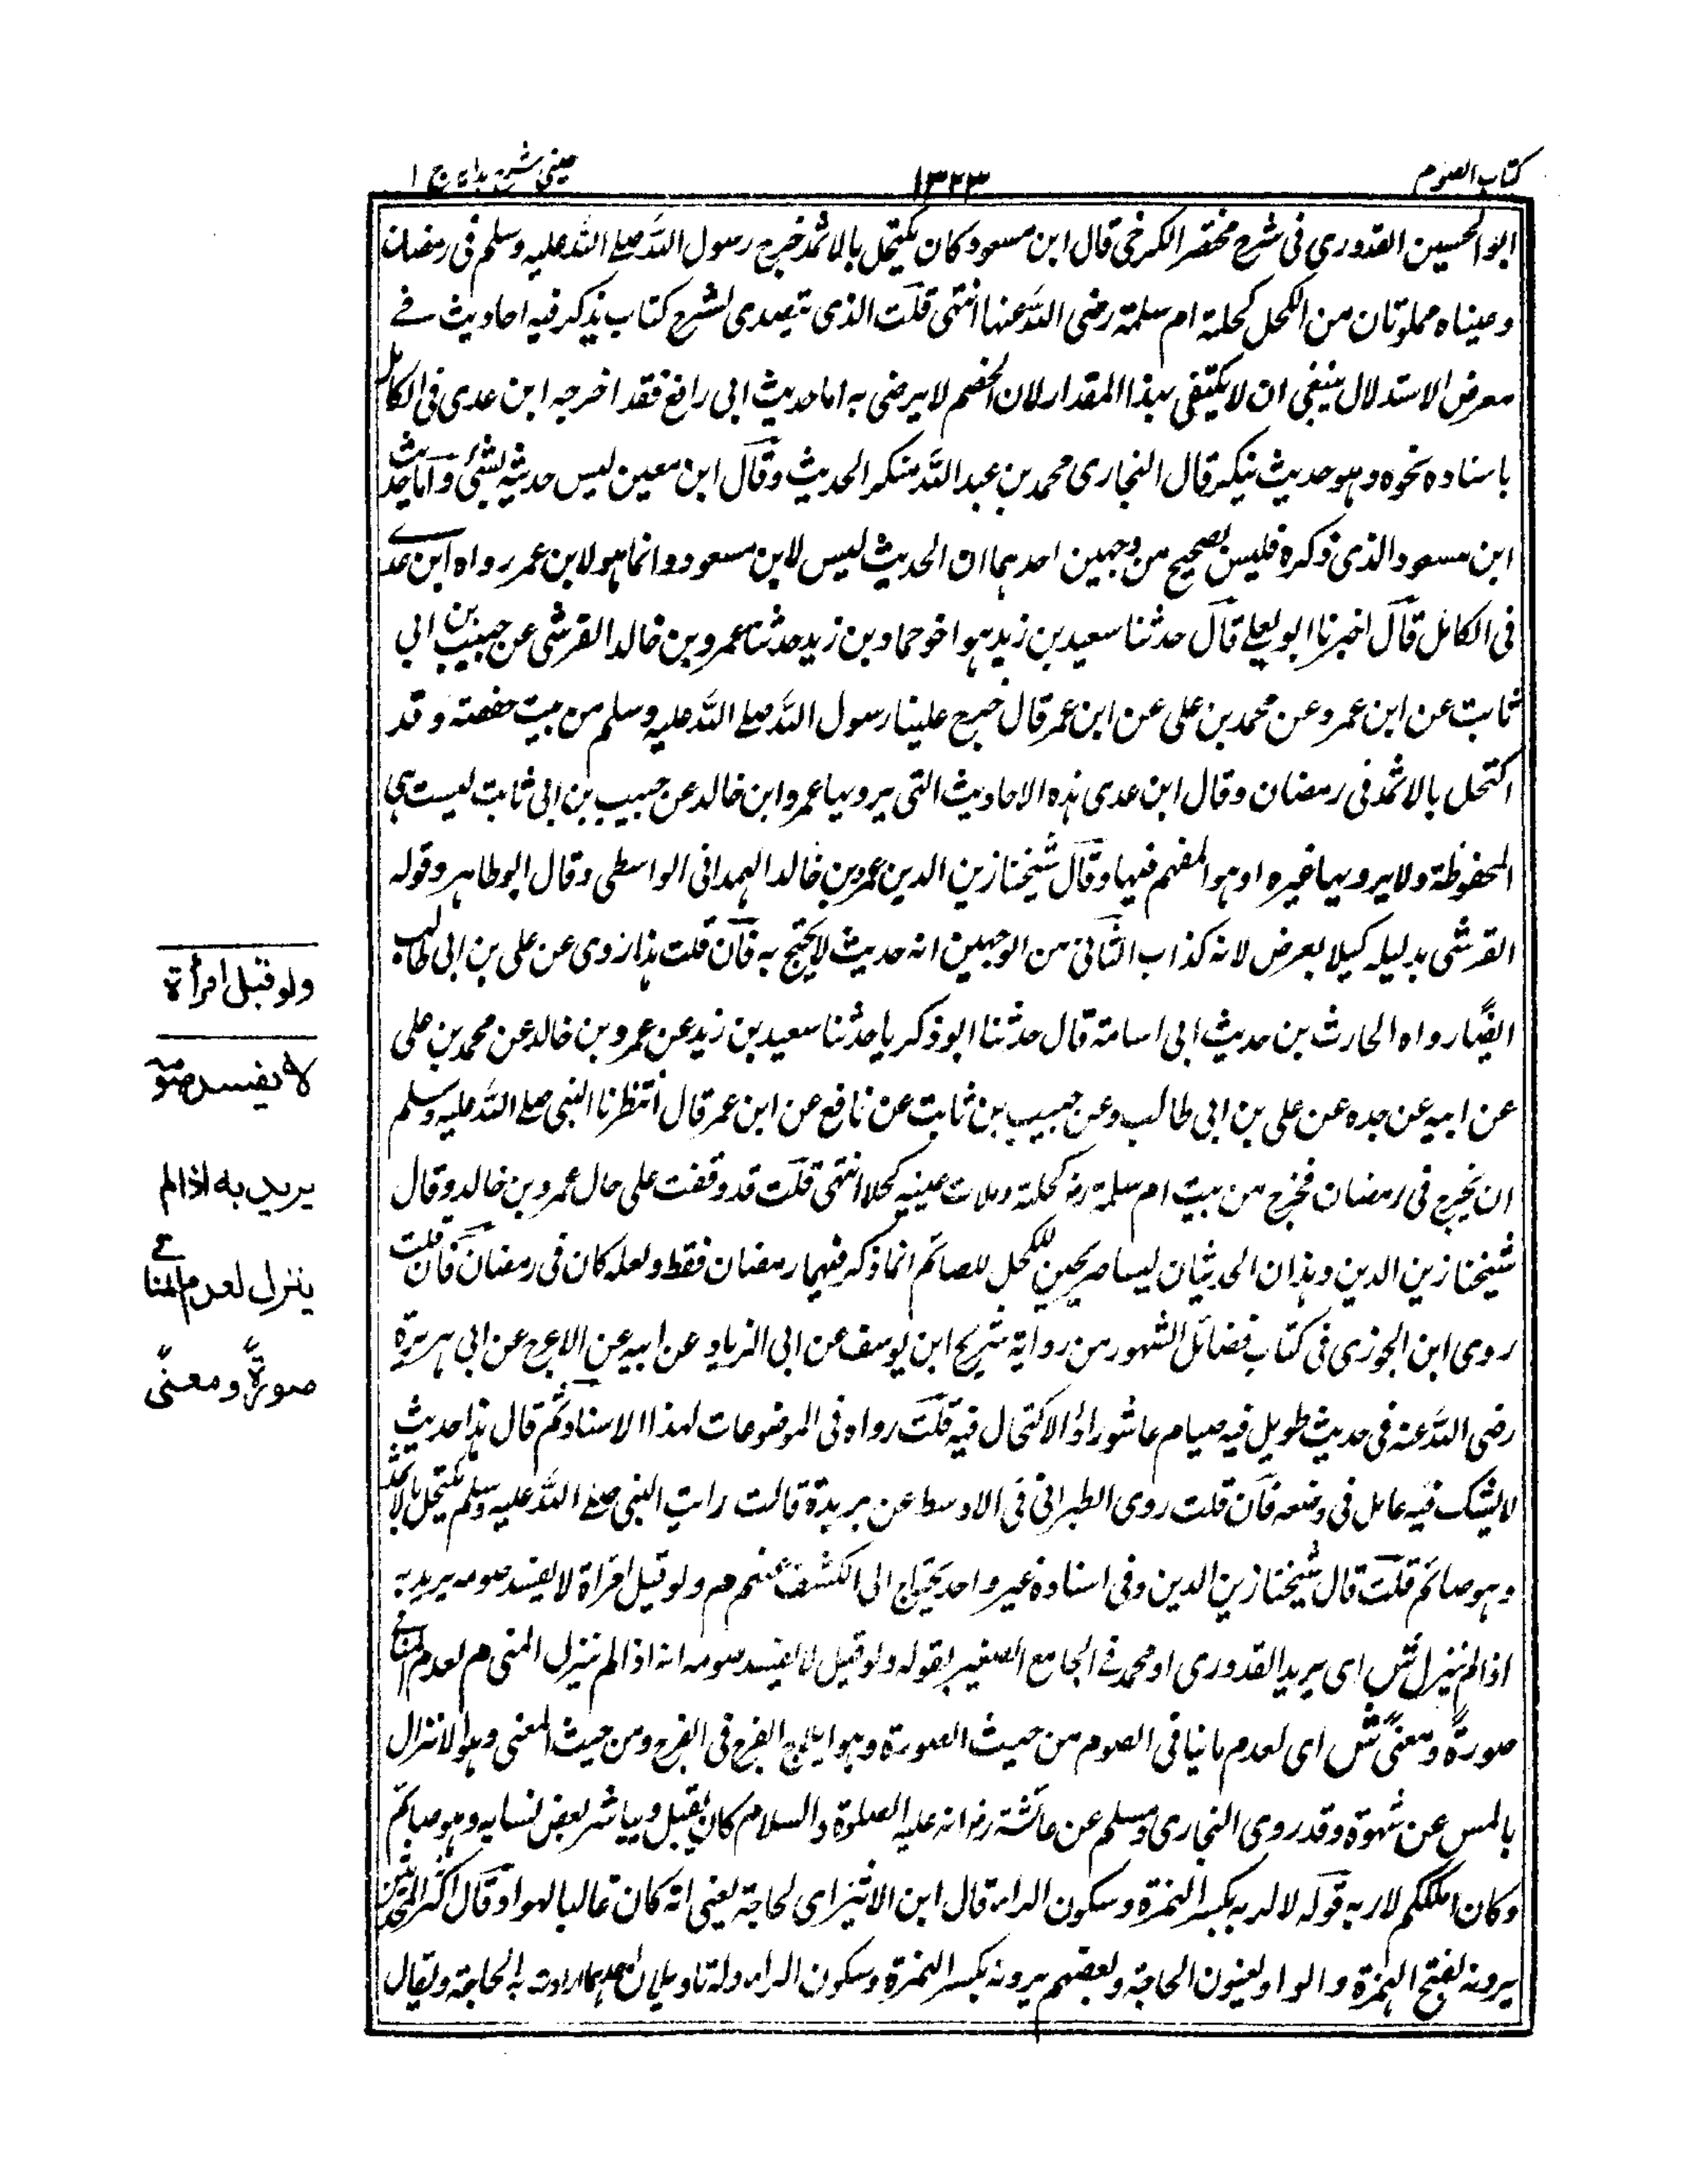 كتاب الصوم
١٣٢٣
عینی شرح ہدایہ ج ١
ابو الحسين القدوري فى شرح مختصر الكرخى قال ابن مسعود كان يكتحل بالاثمد خرج رسول الله صلے الله عليه وسلم فى رمضان
وعيناه مملوتان من الكحل كحلته ام سلمة رضى الله عنها انتهى قلت الذى تتصدى لشرح كتاب يذكر فيه احاديث فے
معرض الاستدلال ينبغى ان لا يكتفى بهذا المقدار لان الخصم لا يرضى به اما حديث ابى رافع فقد اخرجه ابن عدى فى الكامل
باسناده نحوه وهو حديث منكر قال البخارى محمد بن عبد الله منكر الحديث وقال ابن معين ليس حديثه بشئ واما حديث
ابن مسعود الذى ذكره فليس بصحيح من وجهين احدهما ان الحديث ليس لابن مسعود وانما هو لابن عمر رواه ابن عدے
فى الكامل قال اخبرنا ابو يعلے قال حدثنا سعيد بن زيد هو اخو حماد بن زيد حدثنا عمرو بن خالد القرشى عن حبيب بن ابى
ثابت عن ابن عمر وعن محمد بن على عن ابن عمر قال خرج علينا رسول الله صلے الله عليه وسلم من بيت حفصة وقد
اكتحل بالاثمد فى رمضان وقال ابن عدى هذه الاحاديث التى يرويها عمرو ابن خالد عن حبيب بن ابى ثابت ليست هى
المحفوظة ولا يرويها غيره وهو المفهم فيها وقال شيخنا زين الدين عمرو بن خالد الهمدانى الواسطى وقال ابو طاهر وقوله
القرشى بدليله كيلا يعرض لانه كذاب الثانى من الوجهين انه حديث لا يحتج به فان قلت هذا روى عن على بن ابى طالب
ايضا رواه الحارث بن حديث ابى اسامة قال حدثنا ابو ذكريا حدثنا سعيد بن زيد عن عمرو بن خالد عن محمد بن على
عن ابيه عن جده عن على بن ابى طالب وعن حبيب بن ثابت عن نافع عن ابن عمر قال انتظرنا النبى صلے الله عليه وسلم
ان يخرج فى رمضان فخرج من بيت ام سلمة رض كحلته وملات عينيه كحلا انتهى قلت قد وقفت على حال عمرو بن خالد وقال
شيخنا زين الدين وهذان الحديثان ليسا صريحين للكحل للصائم انما ذكر فيهما رمضان فقط ولعله كان فى رمضان فان قلت
روى ابن الجوزى فى كتاب فضائل الشهور من رواية شريح ابن يوسف عن ابى الزناد عن ابيه عن الاعرج عن ابى هريرة
رضى الله عنه فى حديث طويل فيه صيام عاشوراء والاكتحال فيه قلت رواه فى الموضوعات لهذا الاسناد ثم قال هذا حديث
لا يشك فيه عامل فى وضعه فان قلت روى الطبرانى فى الاوسط عن بريدة قالت رايت النبى صلے الله عليه وسلم يكتحل بالاثمد
وهو صائم قلت قال شيخنا زين الدين وفى اسناده غير واحد يحتاج الى الكشف عنهم م ولو قبل امرأة لا يفسد صومه يريد به
اذا لم ينزل ش اى يريد القدورى او محمد فى الجامع الصغير بقوله ولو قبل لا يفسد صومه انه اذا لم ينزل المنى م لعدم المنافے
صورة ومعنى ش اى لعدم ما ينافى الصوم من حيث الصورة وهو ايلاج الفرج فى الفرج ومن حيث المعنى وهو الانزال
بالمس عن شهوة وقد روى البخارى ومسلم عن عائشة رض انه عليه الصلوة والسلام كان يقبل ويباشر بعض نسايه وهو صائم
وكان املككم لاربه قوله لاربه بكسر الهمزة وسكون الراء قال ابن الاثير اى لحاجة يعنى انه كان غالبا لهواه وقال اكثر المحدثين
يروونه بفتح الهمزة والواو يعنون الحاجة وبعضهم يروونه بكسر الهمزة وسكون الراء وله تاويلان احدهما ارادت به الحاجة ويقال
ولو قبل امرأة
لا يفسد صومه
يريد به اذا لم
ينزل لعدم المنافے
صورةً ومعنىً